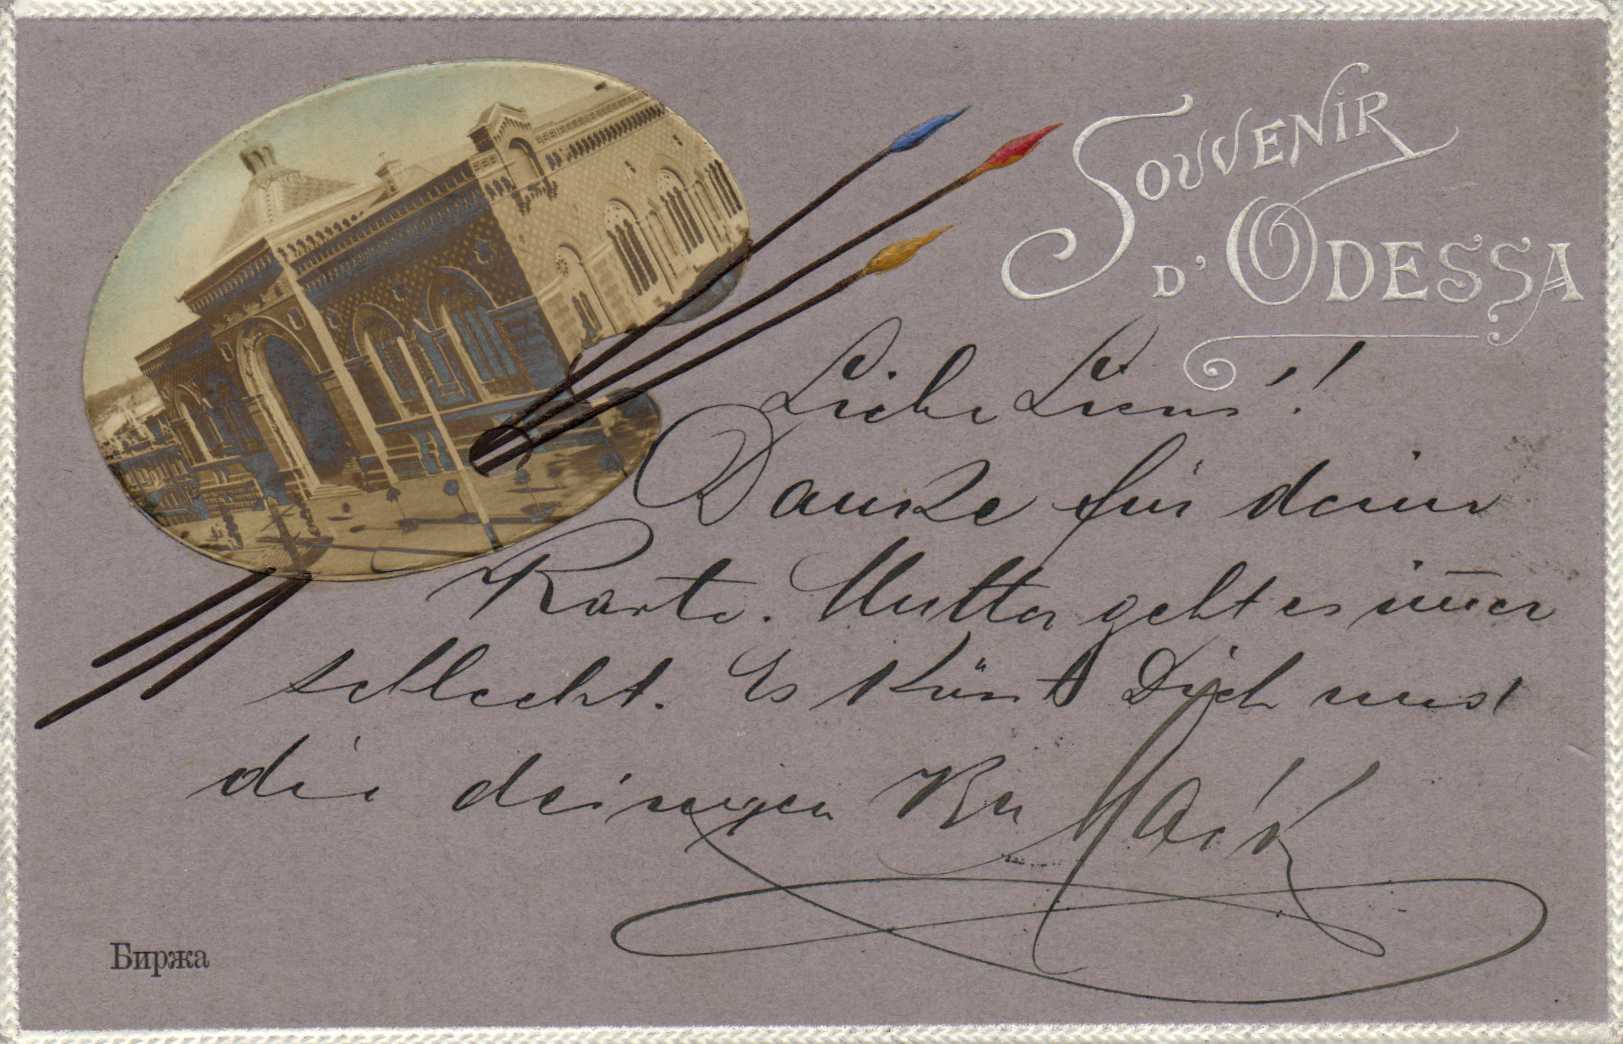 SOUVENIR
D'ODESSA
Liebe
Danke für deine
Karte. Mutter geht es im̅er
schlecht. Es Küst Dich und
die deinigen
Биржа